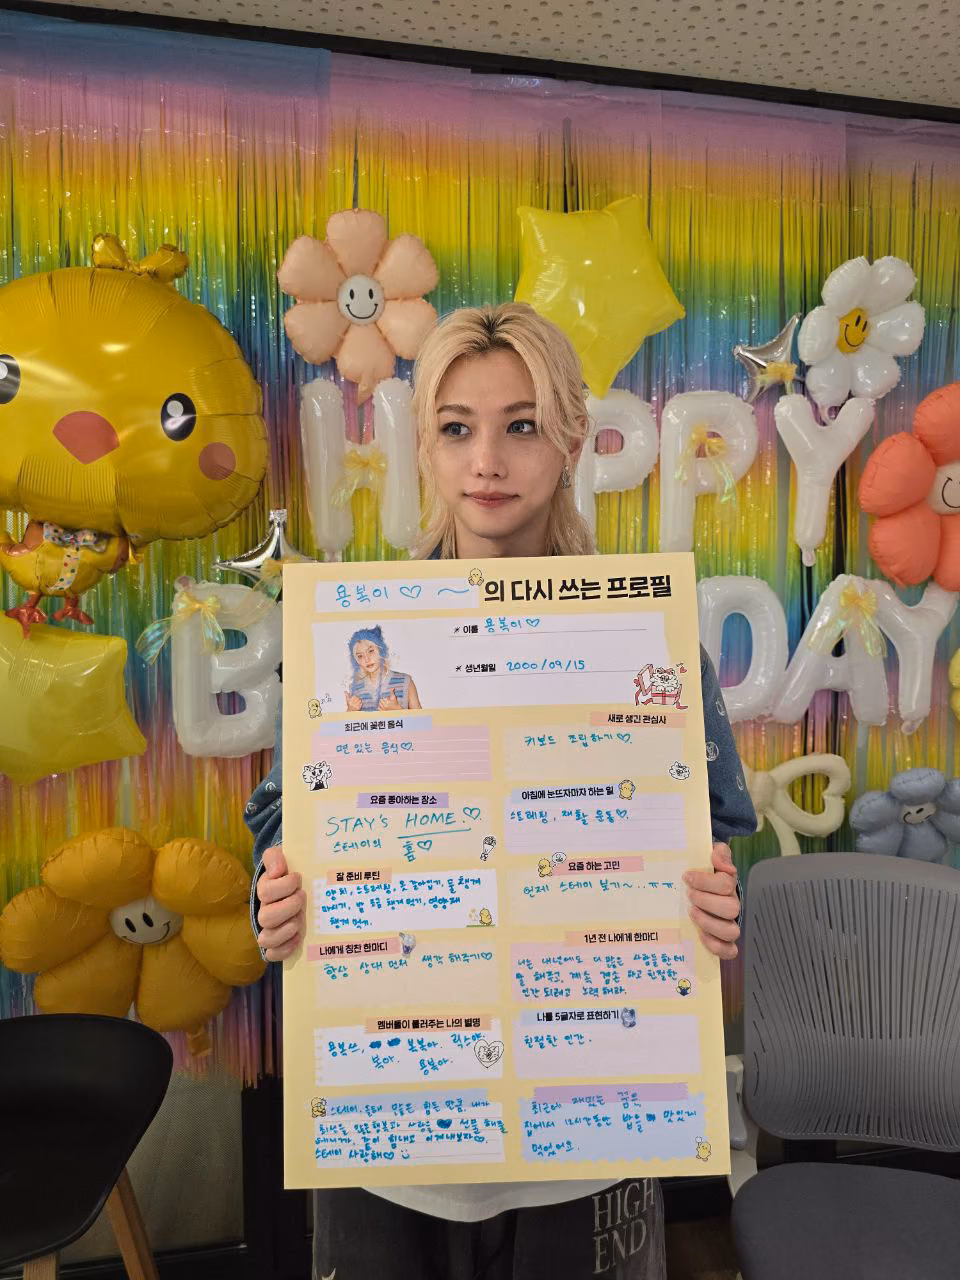 HAPPY
B DAY
용복이 ♡ ~ 의 다시 쓰는 프로필
* 이름 용복이♡
* 생년월일 2000/09/15
최근에 꽂힌 음식
면 있는 음식♡.
새로 생긴 관심사
키보드 조립하기♡.
요즘 좋아하는 장소
STAY's HOME.♡.
스테이의 홈♡
아침에 눈뜨자마자 하는 일
스트레칭, 재활 운동♡.
잘 준비 루틴
양치, 스트레칭, 옷 갈아입기, 물 챙겨
마시기, 밥 조금 챙겨 먹기, 영양제
챙겨 먹기.
요즘 하는 고민
언제 스테이 보기~..ㅠㅠ.
나에게 칭찬 한마디
항상 상대 먼저 생각 해주기♡
1년 전 나에게 한마디
너는 내년에도 더 많은 사람들한테
해주고, 계속 겸손 하고 친절한
인간 되려고 노력 해라.
멤버들이 불러주는 나의 별명
용복쓰, 복복아. 릭스야.
복아. 용복아.
나를 5글자로 표현하기
친절한 인간.
스테이, 올해 많은 힘든 만큼, 내가
최선을 많은 행복과 사랑을 선물 해줄
테니까, 같이 힘내고 이겨내보자♡.
스테이 사랑해♡
최근에 재밌는 꿈은,
집에서 12시간동안 밥을 맛있게
먹었어요.
HIGH
END